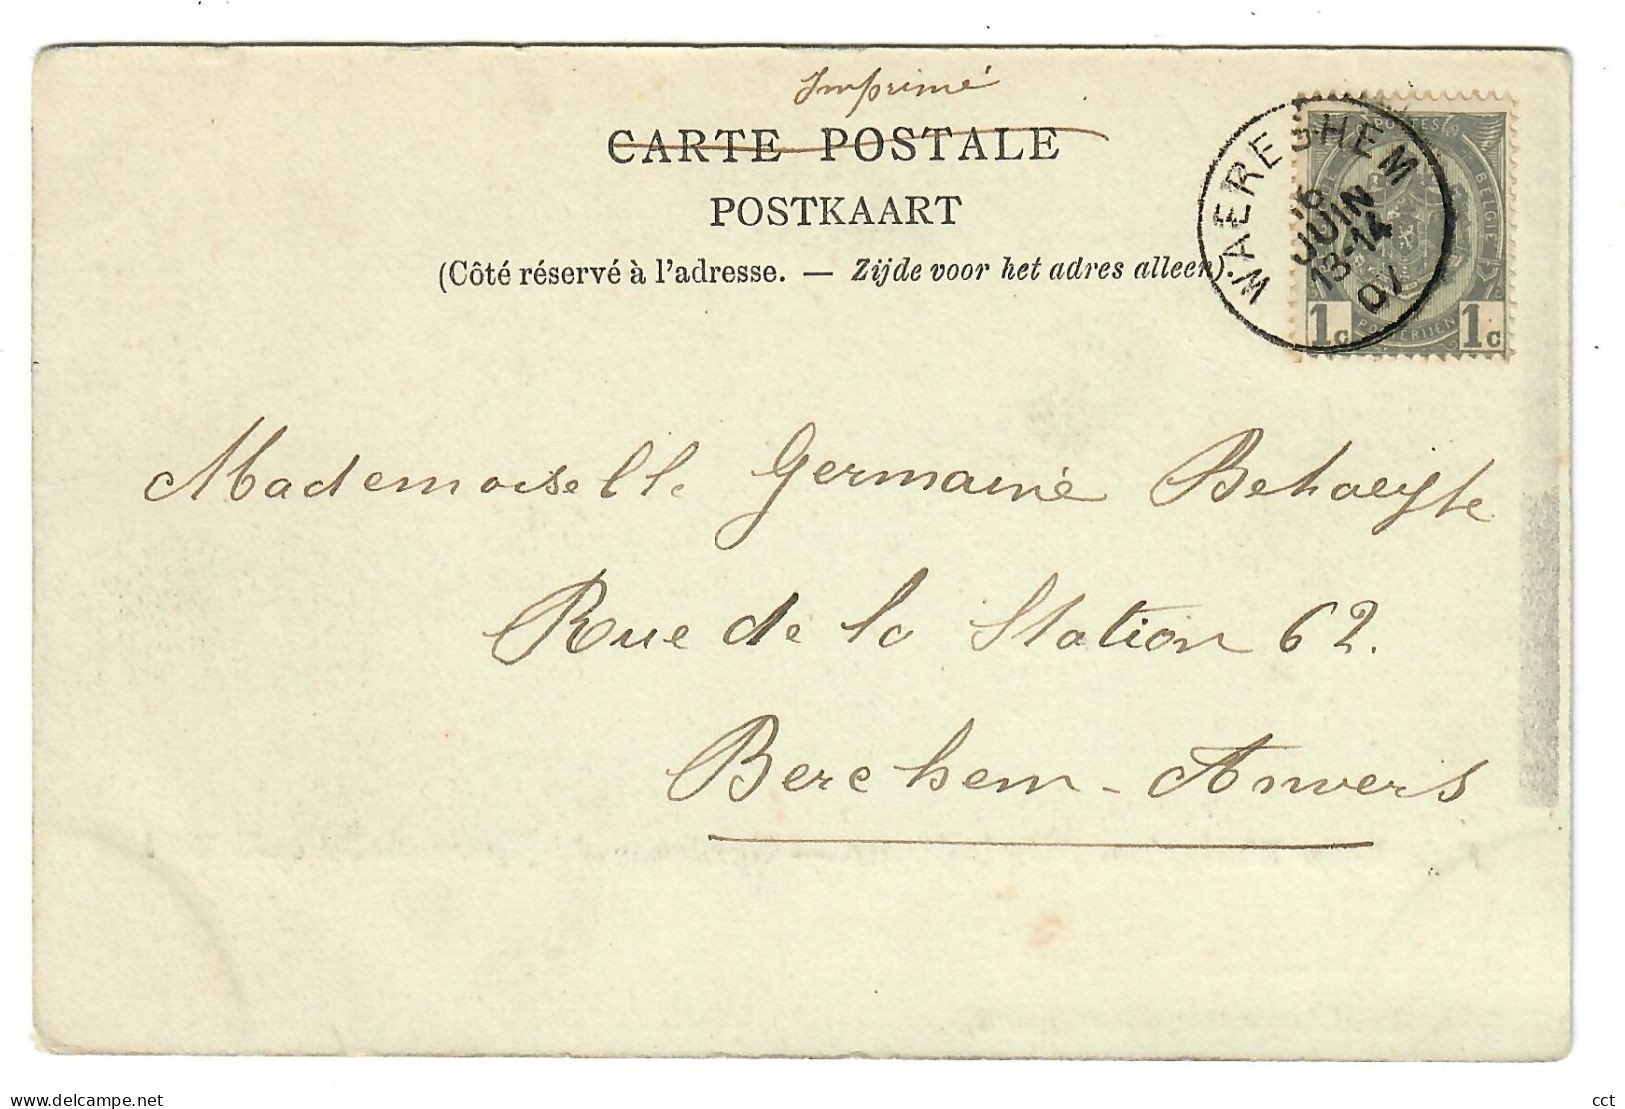 Imprimé
CARTE POSTALE
POSTKAART
(Côté réservé à l'adresse. — Zijde voor het adres alleen).
WAEREGHEM
16
JUIN
13-14
07
POSTES
BELGIE
POSTERIJEN
1c 1c
Mademoiselle Germaine Behaeyte
Rue de la Station 62.
Berchem - Anvers
www.delcampe.net
cct